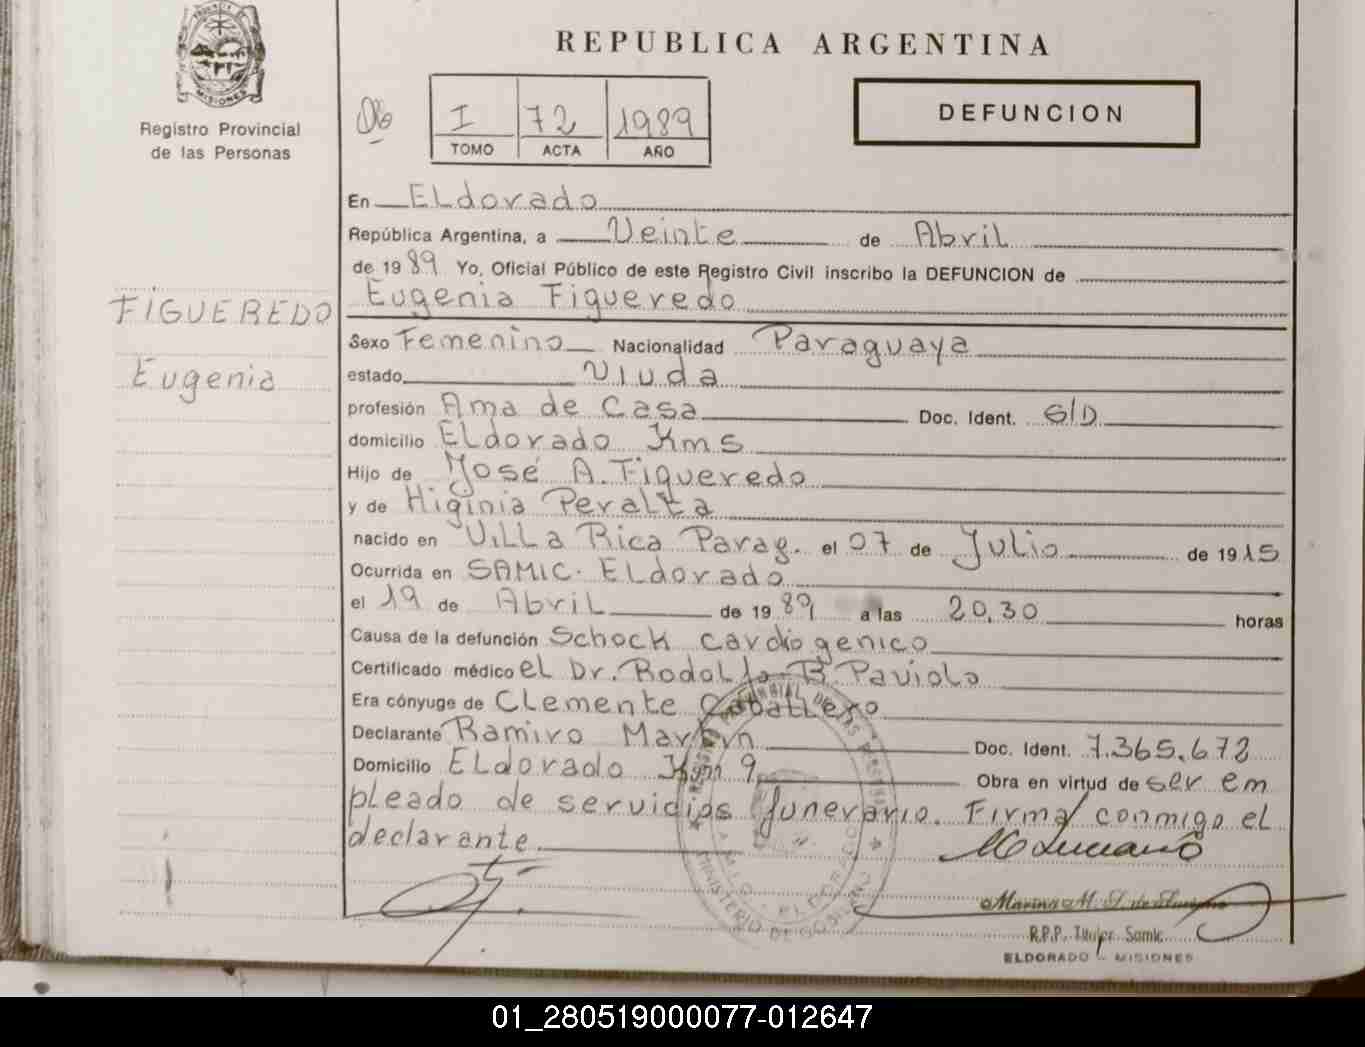 PROVINCIA DE
MISIONES
Registro Provincial
de las Personas
FIGUEREDO
Eugenia
REPUBLICA ARGENTINA
I 72 1989
TOMO ACTA AÑO
DEFUNCION
En ELdorado
República Argentina, a Veinte de Abril
de 1989 Yo, Oficial Público de este Registro Civil inscribo la DEFUNCION de
Eugenia Figueredo
Sexo Femenino Nacionalidad Paraguaya
estado Viuda
profesión Ama de Casa Doc. Ident. S/D
domicilio ELdorado Kms
Hijo de José A. Figueredo
y de Higinia Peralta
nacido en ViLLa Rica Parag. el 07 de Julio de 1915
Ocurrida en SAMIC. ELdorado
el 19 de Abril de 1989 a las 20,30 horas
Causa de la defunción Schock cardiogenico
Certificado médico el Dr. Rodolfo B. Paviolo
Era cónyuge de Clemente Caballero
Declarante Ramiro Doc. Ident. 7.365.672
Domicilio ELdorado Km 9 Obra en virtud de ser em
pleado de servicios funerario. Firma conmigo el
declarante
MINISTERIO DE GOBIERNO
R.P.P. Titular Samic
ELDORADO - MISIONES
01_280519000077-012647